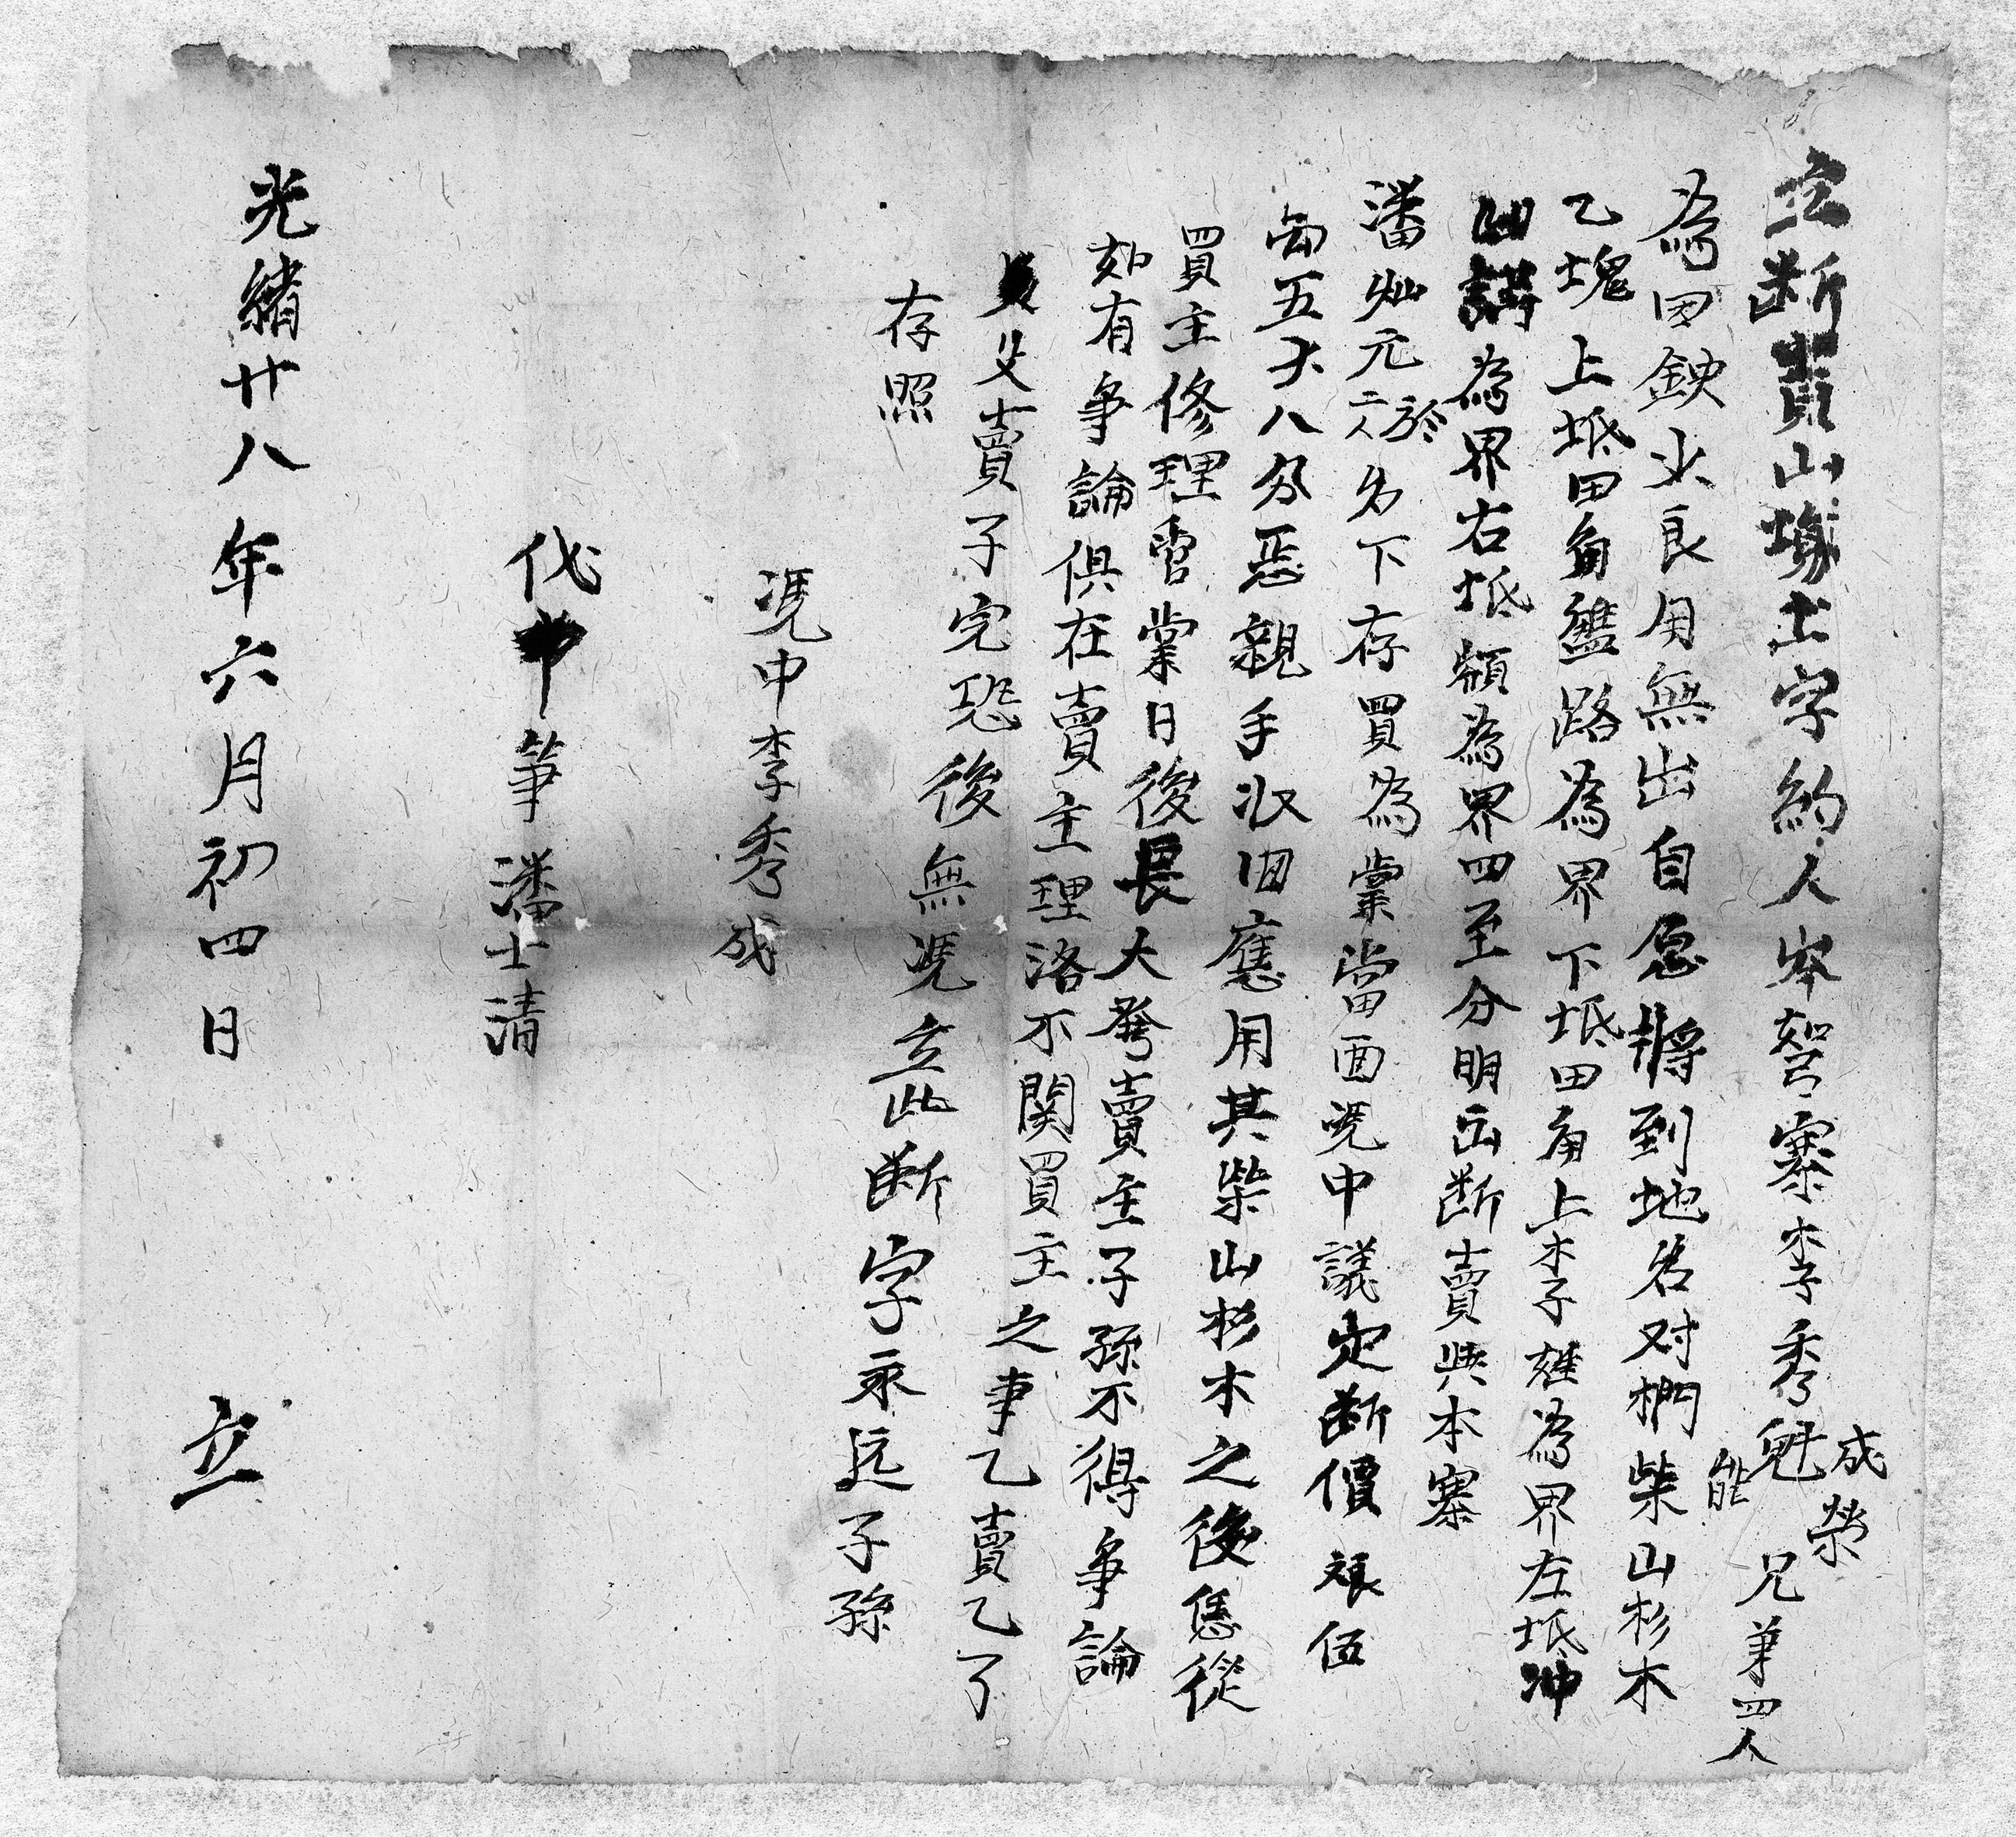 立断賣山塲土字約人岑𭓇寨李秀魁成榮能兄弟四人
為因缺少良用無出自愿將到地名对椚柴山杉木
乙塊上坻田角盤路為界下坻田角上李子雄為界左坻冲
為界右坻頒為界四至分明出断賣與本寨
潘灿元二人於名下存買為業當面凴中議定断價銀伍
両五才八分悉親手收回應用其柴山杉木之後恁從
買主修理管業日後長大發賣主子孫不得爭論
如有爭論俱在賣主理洛不関買主之事乙賣乙了
父賣子完恐後無凴立此断字永远子孫
存照
凴中李秀成
代筆潘士清
光緒廿八年六月初四日立